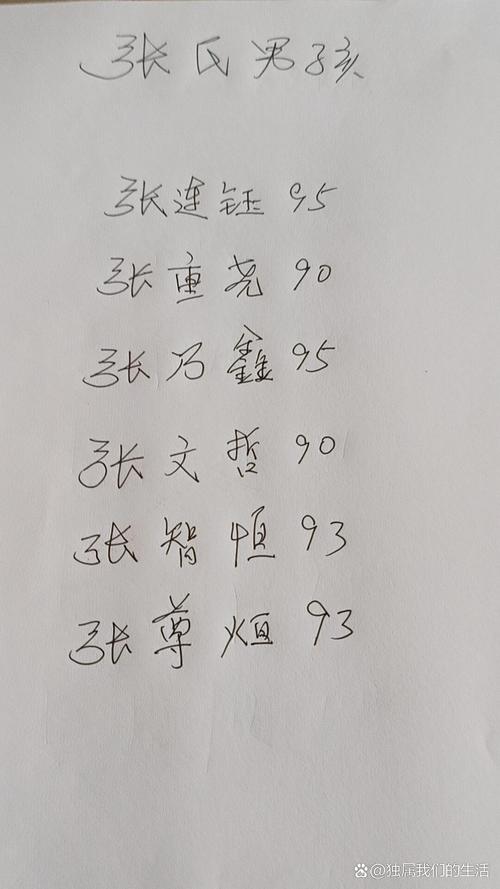 张氏男孩
张连钰 95
张重尧 90
张乃鑫 95
张文哲 90
张智恒 93
张尊烜 93
@独属我们的生活